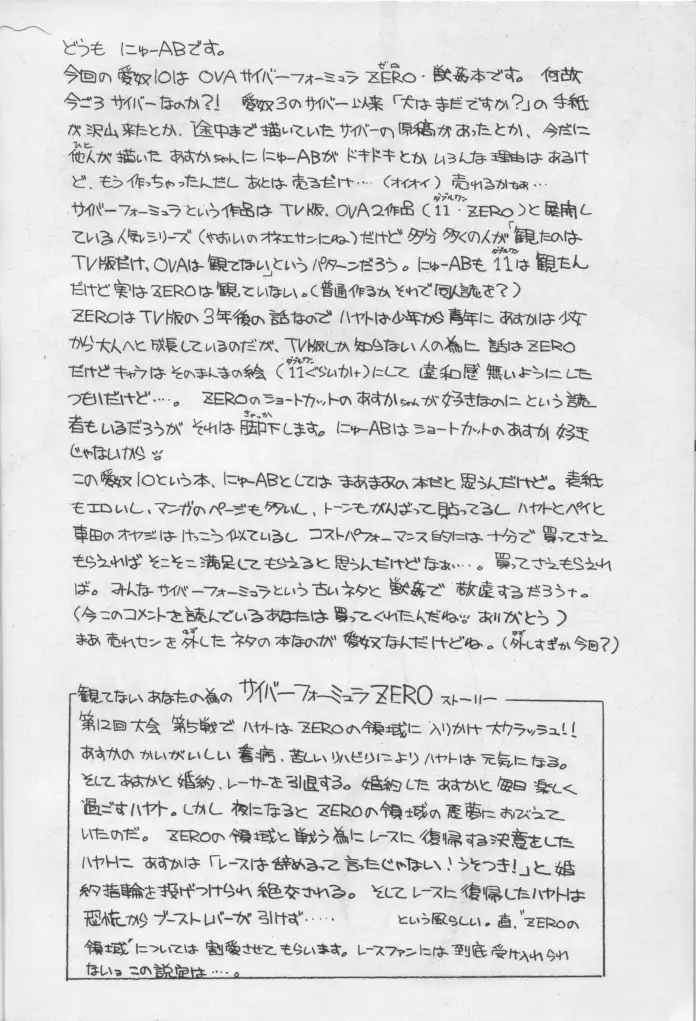 どうも にゅーABです。
今回の愛奴10は OVAサイバーフォーミュラ ZERO・獣姦本です。 何故
今ごろサイバーなのか?! 愛奴3のサイバー以来「犬はまだですか?」の手紙
が沢山来たとか、途中まで描いていたサイバーの原稿があったとか、今だに
他人が描いた あすかちゃんに にゅーABが ドキドキとか いろんな理由はあるけ
ど、もう作っちゃったんだし あとは売るだけ‥‥(オイオイ) 売れるかなぁ…
サイバーフォーミュラという作品は TV版、OVA2作品(11・ZERO)と展開し
ている人気シリーズ(やおいのオネエサンにね)だけど 多分 多くの人が「観たのは
TV版だけ、OVAは観てない」というパターンだろう。にゅーABも 11は観たん
だけど実はZEROは観ていない。(普通作るか それで同人誌を?)
ZEROはTV版の3年後の話なので ハヤトは少年から青年に あすかは少女
から大人へと成長しているのだが、TV版しか知らない人の為に 話はZERO
だけどキャラは そのまんまの絵(11ぐらいか)にして 違和感無いようにした
つもりだけど‥‥。 ZEROのショートカットのあすかちゃんが好きなのに という読
者もいるだろうが それは却下します。にゅーABはショートカットのあすか 好き
じゃないから
この愛奴10という本、にゅーABとしては まあまあの本だと思うんだけど。表紙
もエロいし、マンガのページも多いし、トーンもがんばって貼ってるし ハヤトとペイと
車田のオヤジは けっこう似ているし コストパフォーマンス的には十分で 買ってさえ
もらえれば そこそこ満足してもらえると思うんだけどなぁ‥‥。買ってさえもらえれ
ば。みんなサイバーフォーミュラという古いネタと 獣姦で 敬遠するだろうナ。
(今このコメントを読んでいるあなたは買ってくれたんだね ありがとう)
まあ 売れセンを外した ネタの本なのが 愛奴なんだけどね。(外しすぎか今回?)
観てないあなたの為の サイバーフォーミュラZERO ストーリー
第12回大会 第5戦で ハヤトはZEROの領域に 入りかけ大クラッシュ!!
あすかのかいがいしい 看病、苦しいリハビリにより ハヤトは 元気になる。
そしてあすかと婚約、レーサーを引退する。 婚約した あすかと毎日 楽しく
過ごすハヤト。しかし 夜になると ZEROの領域の悪夢に おびえて
いたのだ。 ZEROの領域と戦う為にレースに復帰する決意をした
ハヤトに あすかは「レースは辞めるって言ったじゃない!うそつき!」と婚
約指輪を投げつけられ 絶交される。 そしてレースに復帰したハヤトは
恐怖から ブーストレバーが引けず‥‥‥ という風らしい。直、"ZEROの
領域"については 割愛させてもらいます。レースファンには到底受け入れられ
ないョ この設定は‥‥。